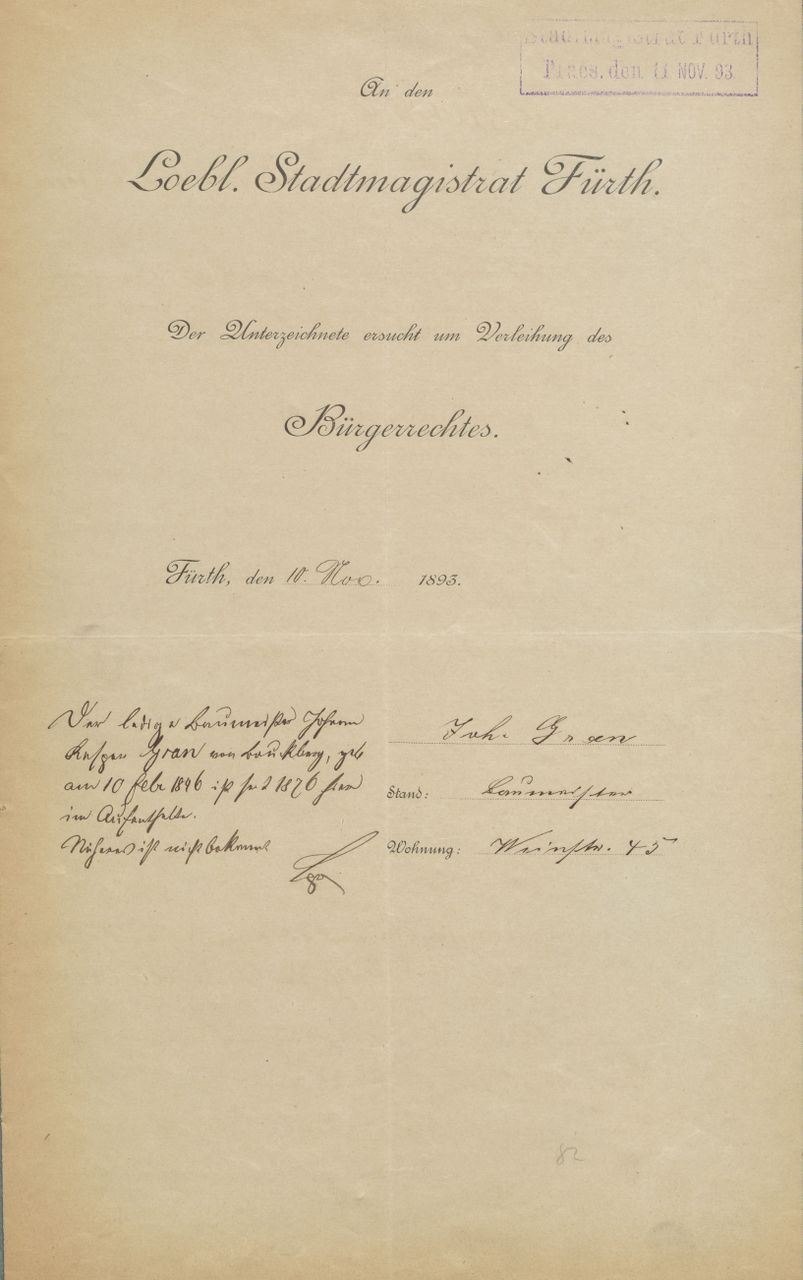 Stadtmagistrat Fürth
Praes. den 11 NOV. 93.
An den
Loebl. Stadtmagistrat Fürth.
Der Unterzeichnete ersucht um Verleihung des
Bürgerrechtes.
Fürth, den 10. Nov. 1893.
Der ledige Baumeister Johann
Kaspar Gran von Bruckberg, geb
am 10 Febr 1846 ist seit 1876 hier
im Aufenthalte.
Näheres ist nicht bekannt
Joh. Gran
Stand: Baumeister
Wohnung: Weinstr. 45
82